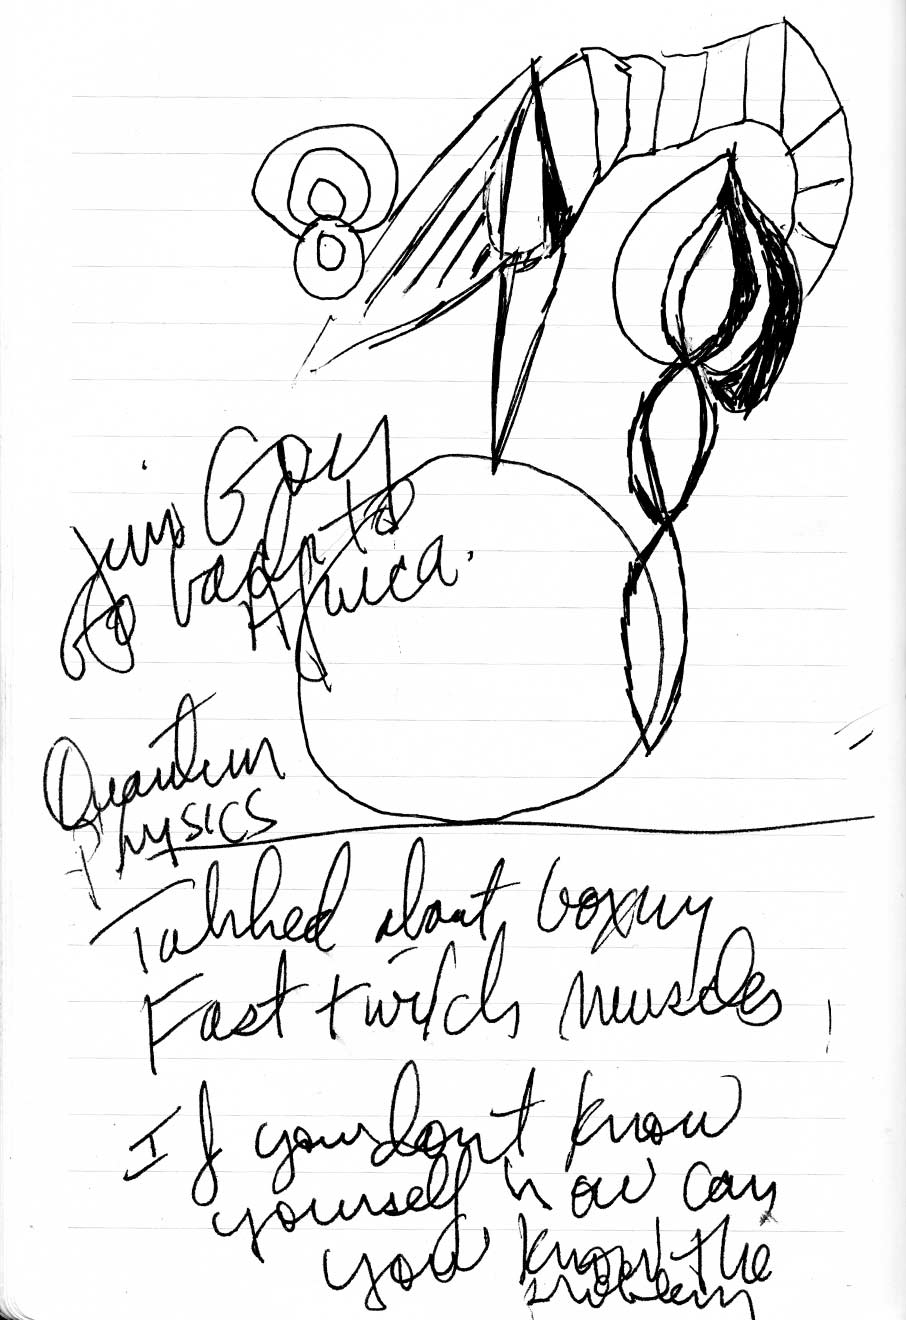 Jim Gray
Go back to
Africa.
Quantum
Physics
Talked about boxing
Fast twitch muscles
If you don't know
yourself how can
you know the
problem